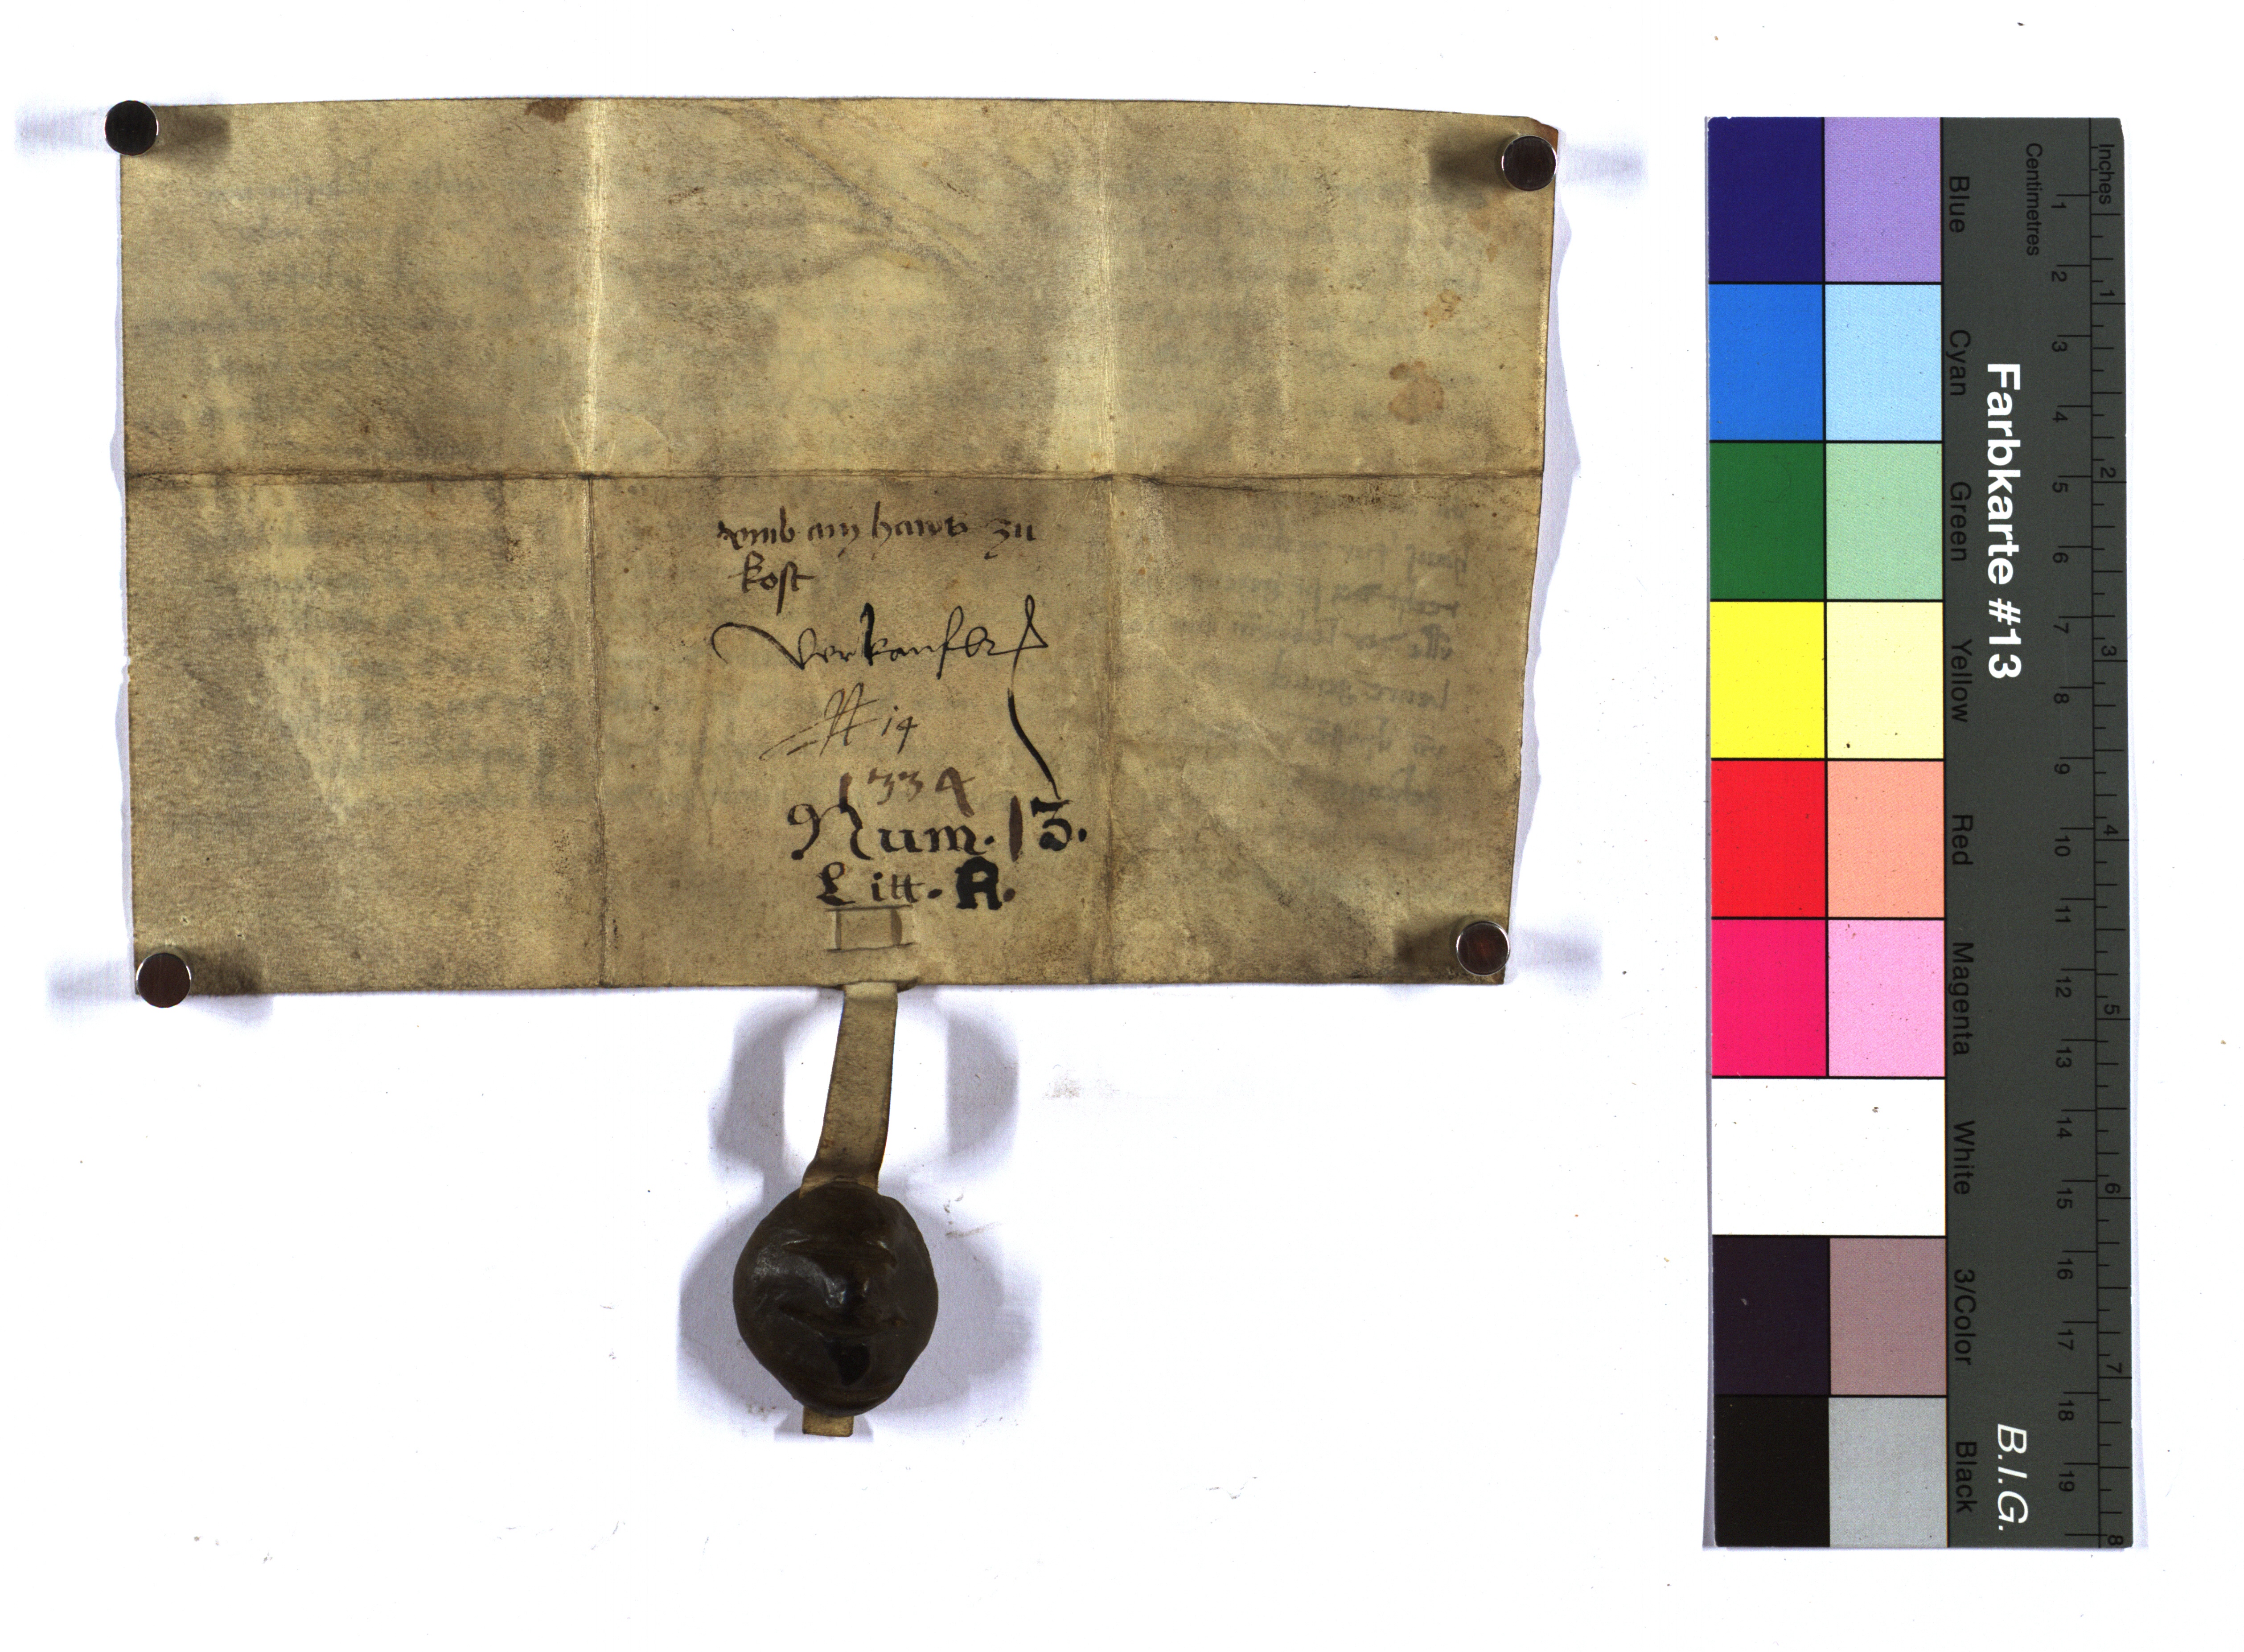 vmb ain haws zu
kost
Verkaufbr
N 14
1334
Num. 13.
Litt. A.
Farbkarte #13
B.I.G.
Blue Cyan Green Yellow Red Magenta White 3/Color Black
Centimetres
1 2 3 4 5 6 7 8 9 10 11 12 13 14 15 16 17 18 19
Inches
1 2 3 4 5 6 7 8